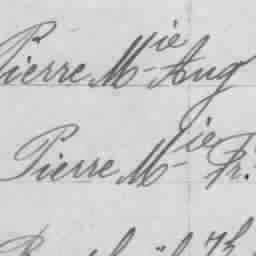 Pierre Mie Aug
Pierre Mie Fr.